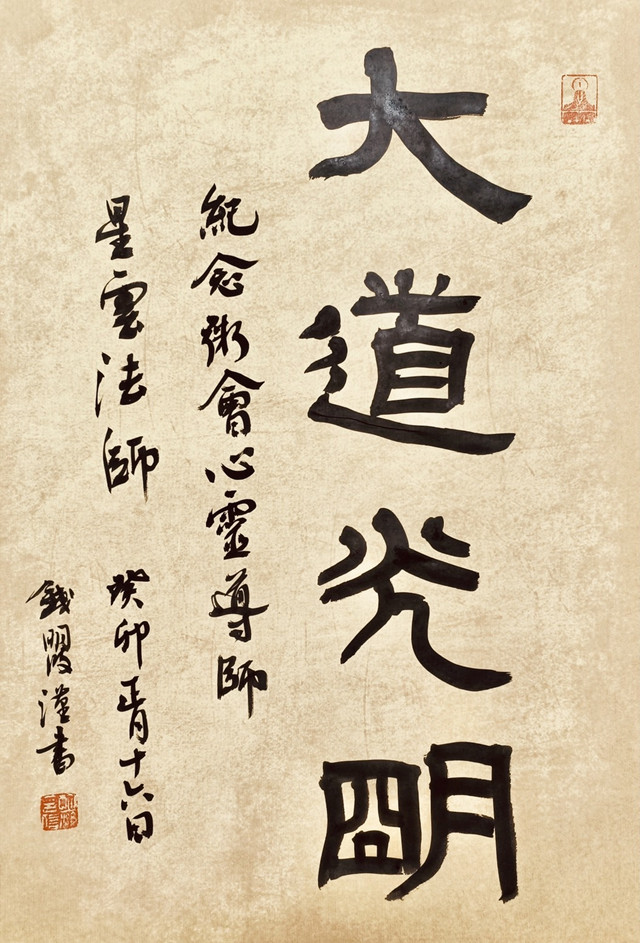 大道光明
紀念粥會心靈導師
星雲法師 癸卯正月十六日
錢 謹書